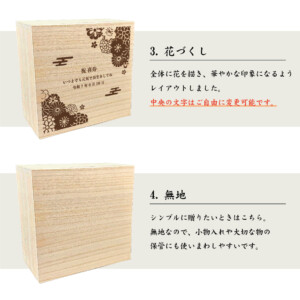 3. 花づくし
全体に花を描き、華やかな印象になるよう
レイアウトしました。
中央の文字はご自由に変更可能です。
4. 無地
シンプルに贈りたいときはこちら。
無地なので、小物入れや大切な物の
保管にも使いまわしやすいです。